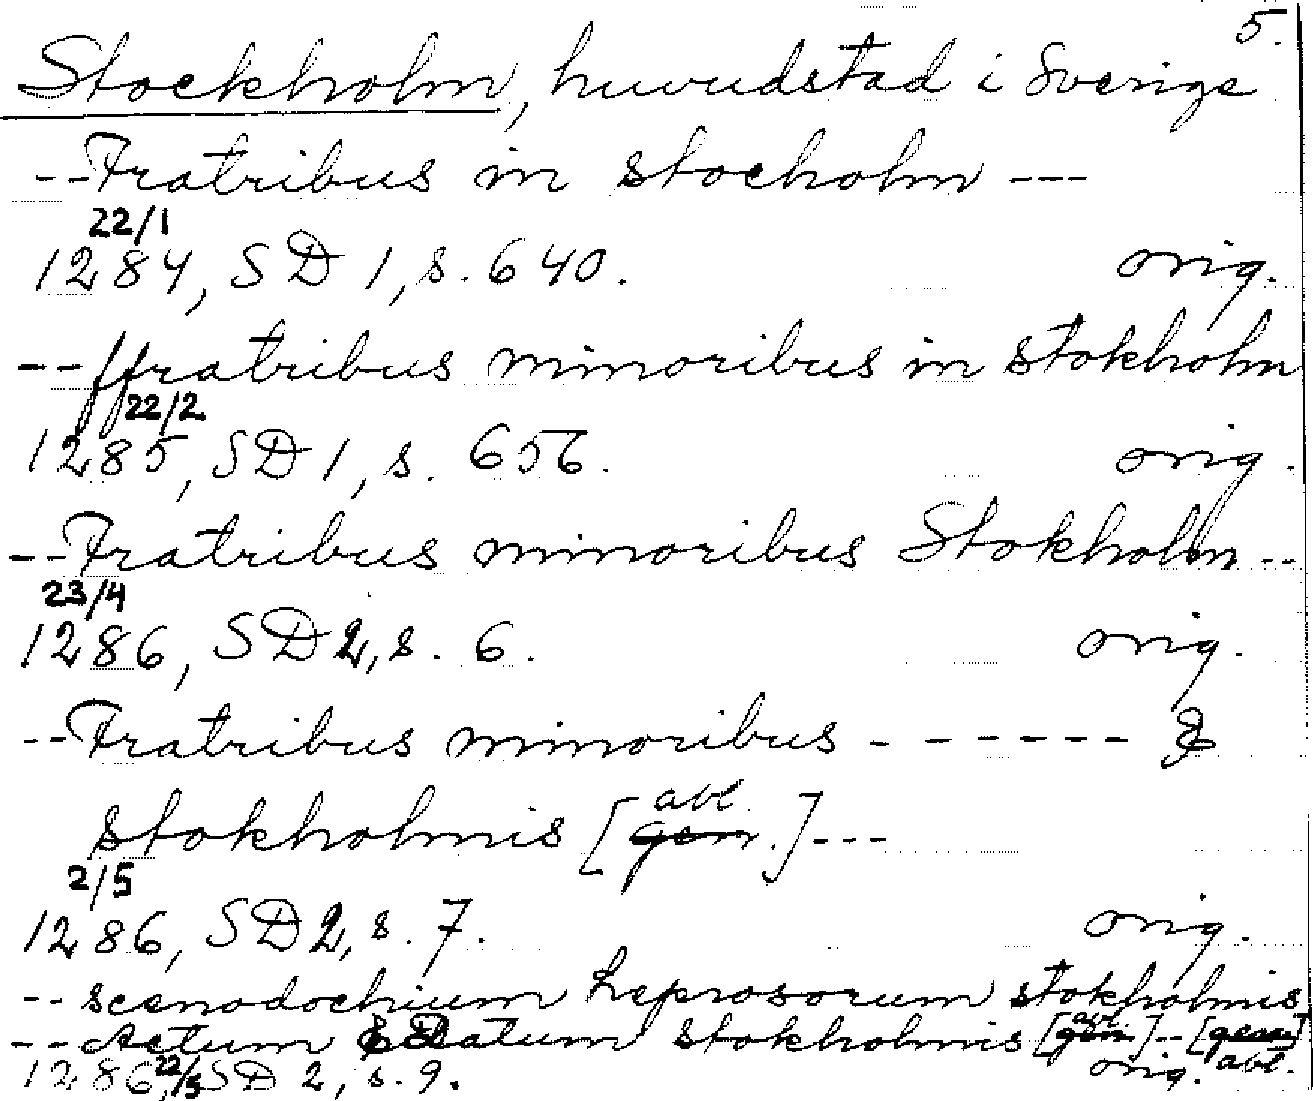 5.
Stockholm, huvudstad i Sverige
--Fratribus in stocholm ---
22/1
1284, SD 1, s. 640. orig.
--ffratribus minoribus in stokholm
22/2
1285, SD 1, s. 656. orig.
--Fratribus minoribus Stokholm--
23/4
1286, SD 2, s. 6. orig.
--Fratribus minoribus - - - - - - &
abl.
stokholmis [gen.]---
2/5
1286, SD 2, s. 7. orig.
-- scenodochium Leprosorum stokholmis
abl.
-- Actum & Datum stokholmis [gen]--[gen]
22/5 abl.
1286, SD 2, s. 9. orig.